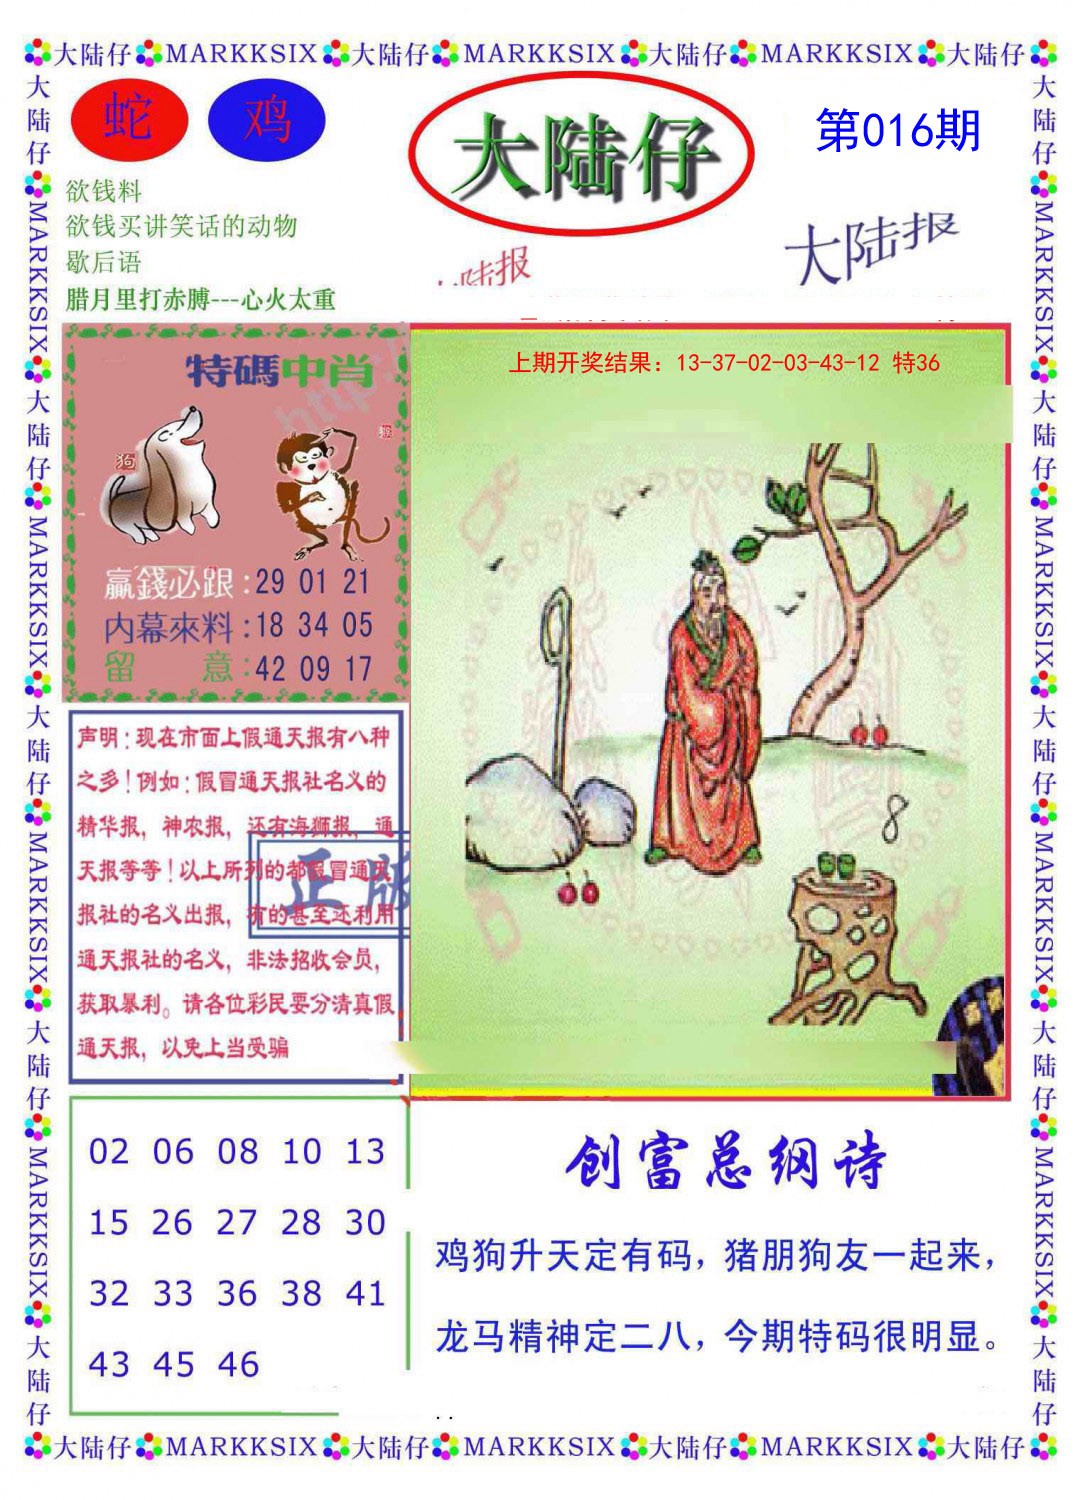 大陆仔 MARKKSIX 大陆仔 MARKKSIX 大陆仔 MARKKSIX 大陆仔
大陆仔 MARKKSIX 大陆仔 MARKKSIX 大陆仔 MARKKSIX 大陆仔 MARKKSIX 大陆仔
蛇 鸡
大陆仔
第016期
欲钱料
欲钱买讲笑话的动物
歇后语
腊月里打赤膊---心火太重
陆报
大陆报
特碼中肖
狗
猴
赢錢必跟:29 01 21
内幕來料:18 34 05
留意:42 09 17
上期开奖结果：13-37-02-03-43-12 特36
8
声明:现在市面上假通天报有八种
之多!例如:假冒通天报社名义的
精华报，神农报，还有海狮报，通
天报等等!以上所列的都假冒通天
报社的名义出报，有的甚至还利用
通天报社的名义，非法招收会员，
获取暴利。请各位彩民要分清真假
通天报，以免上当受骗
正版
02 06 08 10 13
15 26 27 28 30
32 33 36 38 41
43 45 46
创富总纲诗
鸡狗升天定有码，猪朋狗友一起来，
龙马精神定二八，今期特码很明显。
大陆仔 MARKKSIX 大陆仔 MARKKSIX 大陆仔 MARKKSIX 大陆仔 MARKKSIX 大陆仔
大陆仔 MARKKSIX 大陆仔 MARKKSIX 大陆仔 MARKKSIX 大陆仔